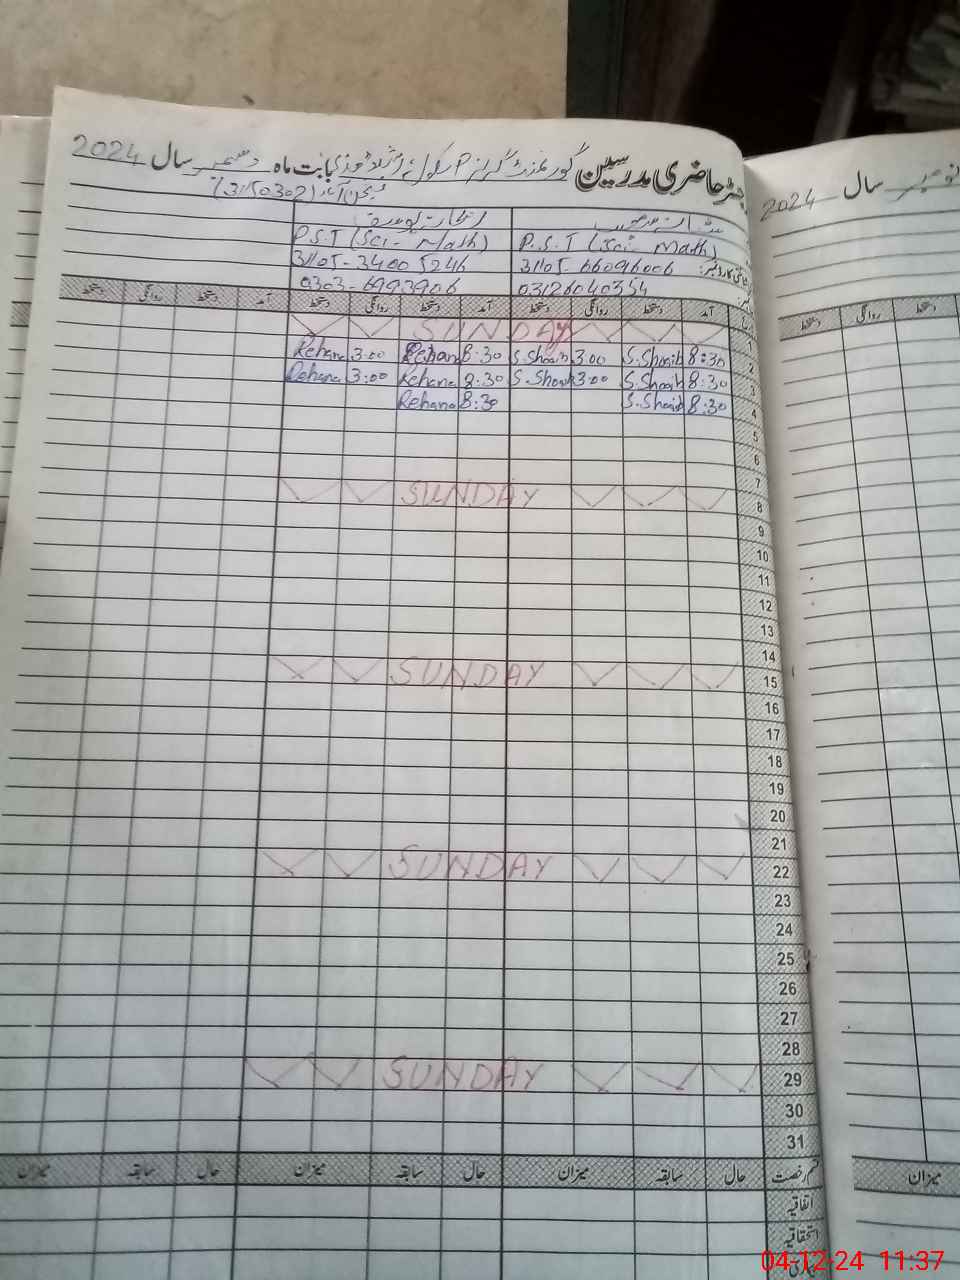 رجسٹر حاضری مدرسین گورنمنٹ گرلز P سکول بابت ماہ دسمبر سال 2024
(31150302)
سال 2024
P.S.T (Sci - Math) P.S.T (Sci - Math)
31105-66096006 31105-34005246
03126040354 0303-6993906
آمد دستخط روانگی دستخط آمد دستخط روانگی دستخط آمد دستخط روانگی دستخط
دستخط روانگی دستخط
1 SUNDAY
2 8:30 S.Shoaib 3:00 S.Shoaib 8:30 Rehana 3:00 Rehana
3 8:30 S.Shoaib 3:00 S.Shoaib 8:30 Rehana 3:00 Rehana
4 8:30 S.Shoaib 8:30 Rehana
5
6
7
8 SUNDAY
9
10
11
12
13
14
15 SUNDAY
16
17
18
19
20
21
22 SUNDAY
23
24
25
26
27
28
29 SUNDAY
30
31
قسم رخصت حال سابقہ میزان حال سابقہ میزان حال سابقہ میزان
میزان
اتفاقیہ
استحقاقیہ
04-12-24 11:37